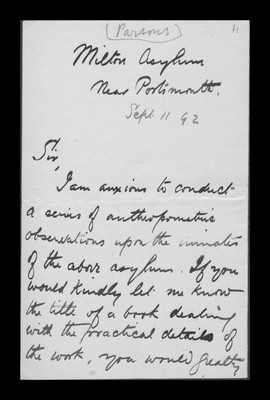 (Parsons)
11
Milton Asylum
Near Portsmouth.
Sept. 11 92
Sir,
I am anxious to conduct
a series of anthropometric
observations upon the inmates
of the above asylum. If you
would kindly let me know
the title of a book dealing
with the practical details of
the work, you would greatly